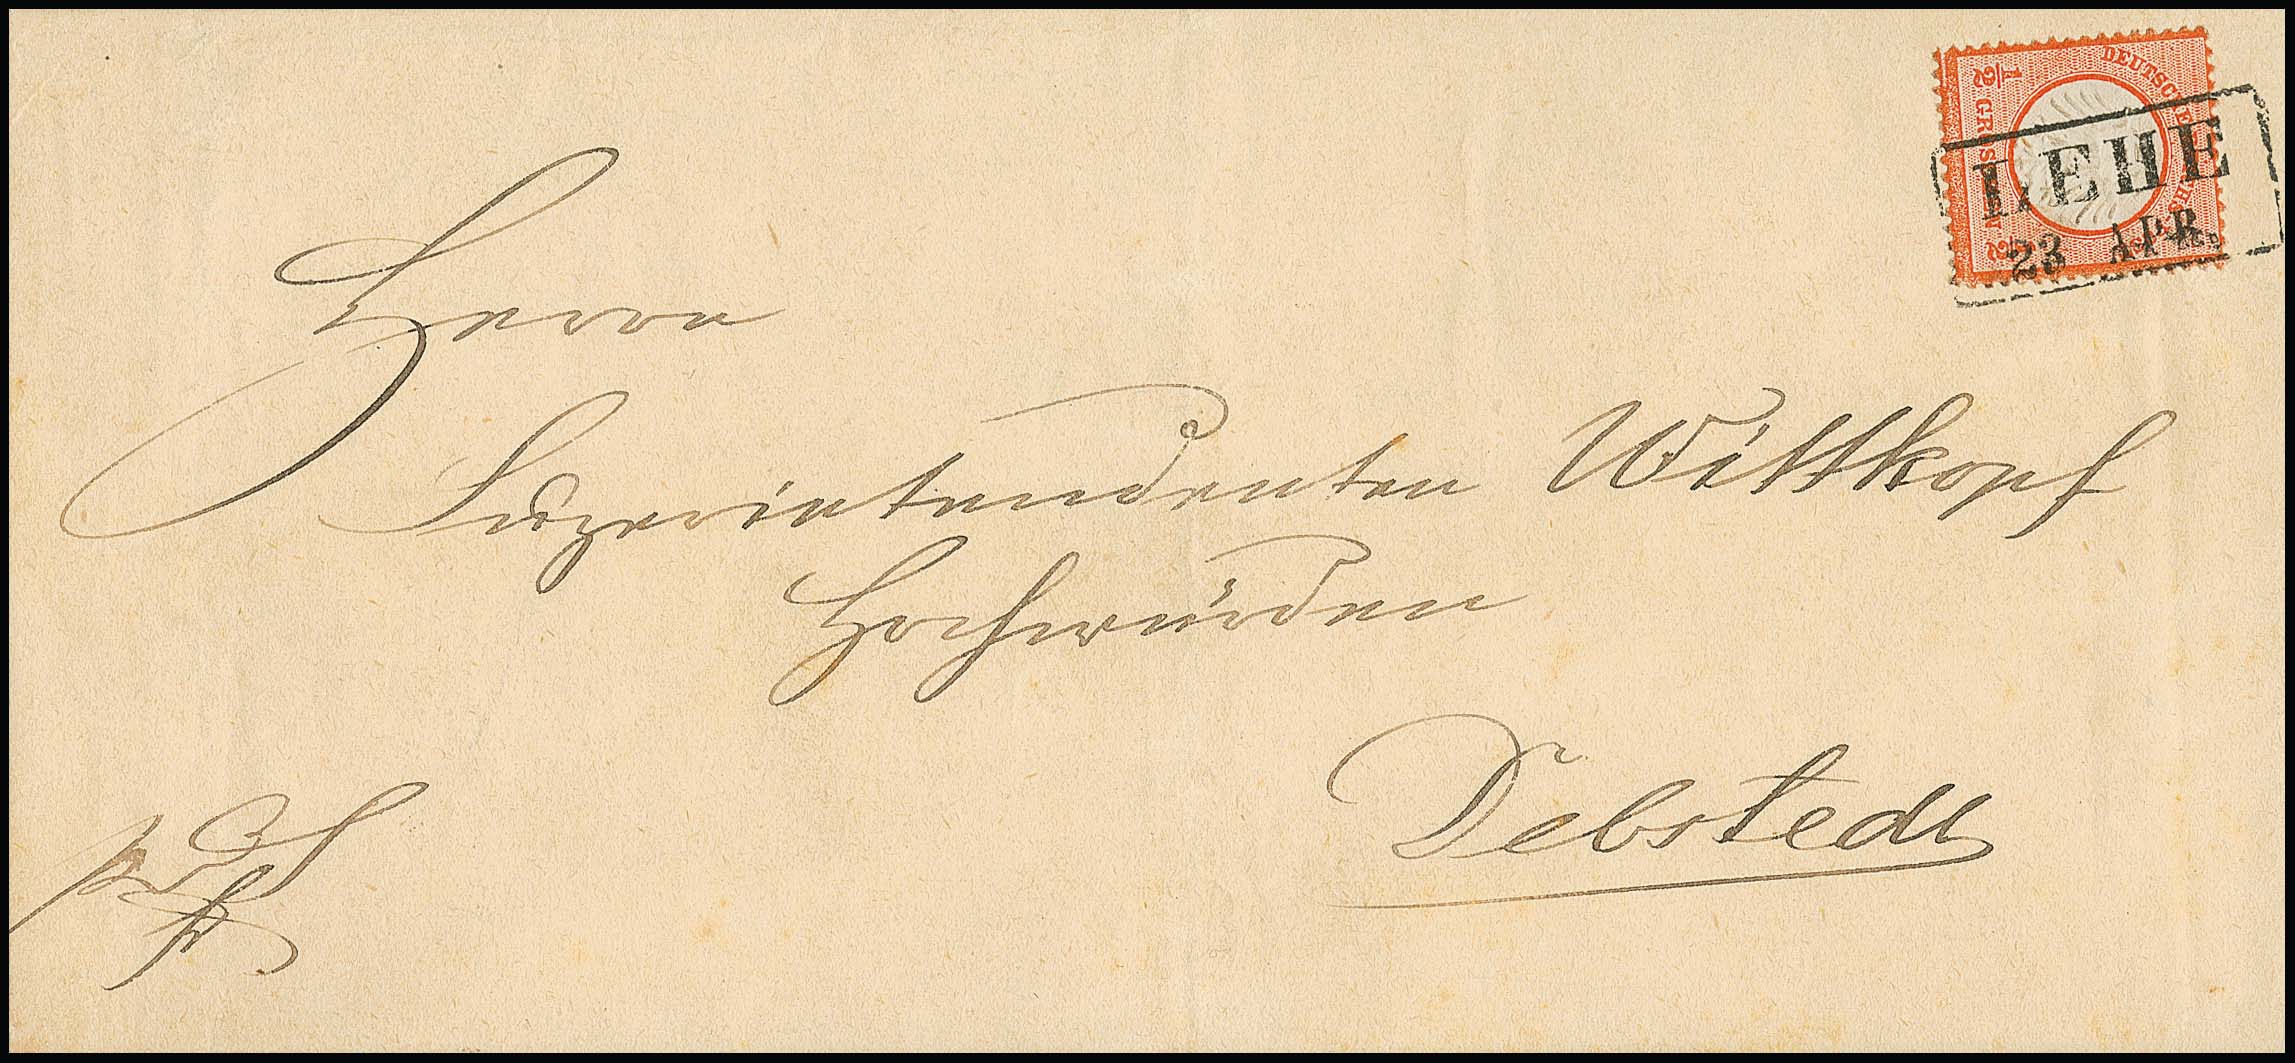 DEUTSCHE REICHSPOST
½ GROSCHEN ½
LEHE
23 APR
Herrn
Superintendenten Wittkopf
Hochwürden
Debstedt